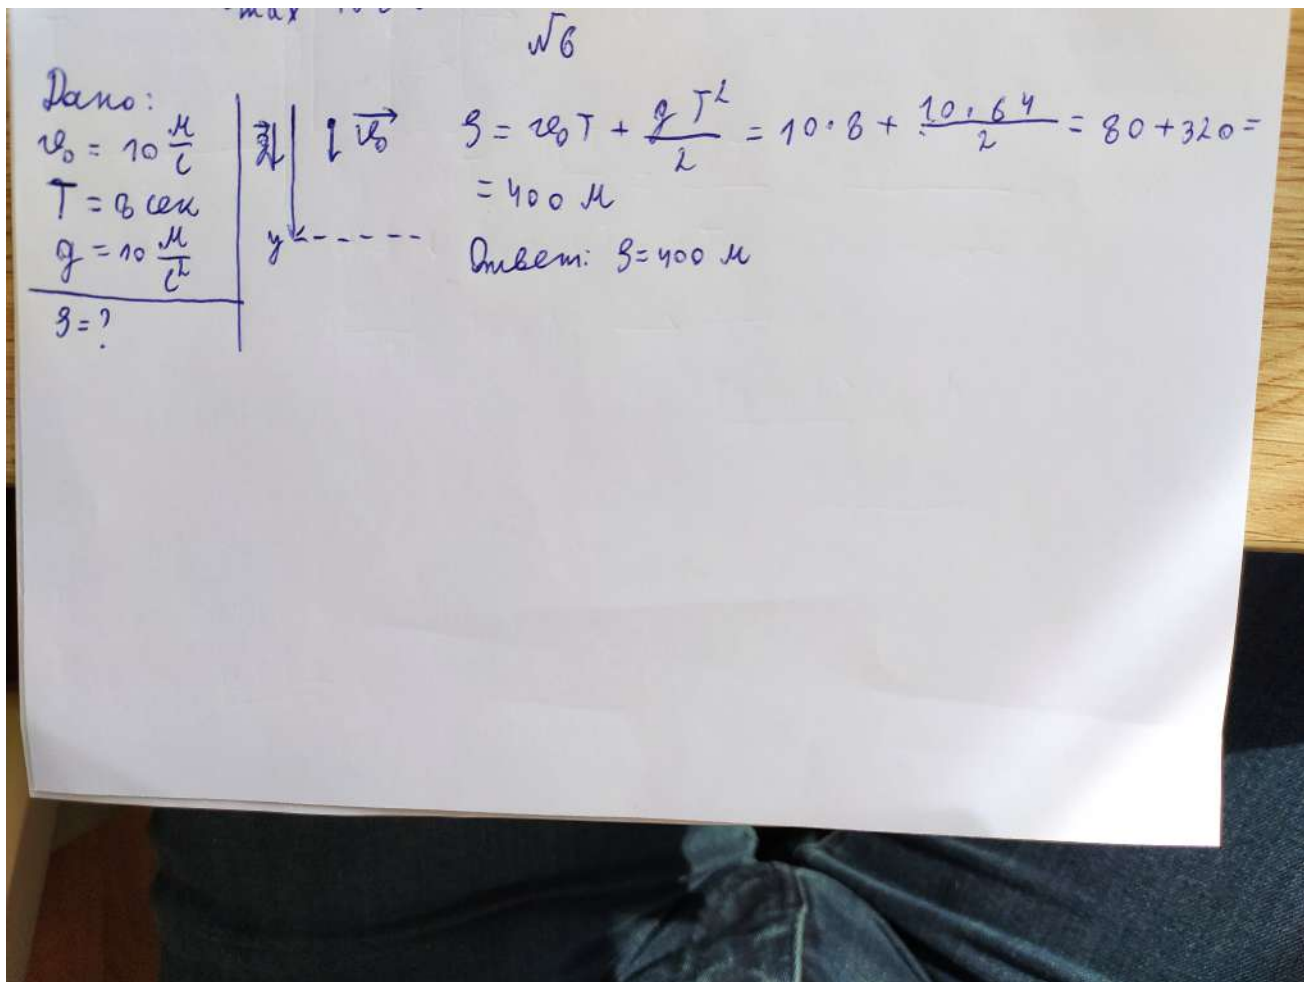 max
√6
Дано:
v₀ = 10 м/с
T = 8 сек
g = 10 м/с²
S = ?
g⃗
v₀⃗
y
S = v₀T + gT²/2 = 10·8 + 10·64/2 = 80 + 320 =
= 400 м
Ответ: S = 400 м